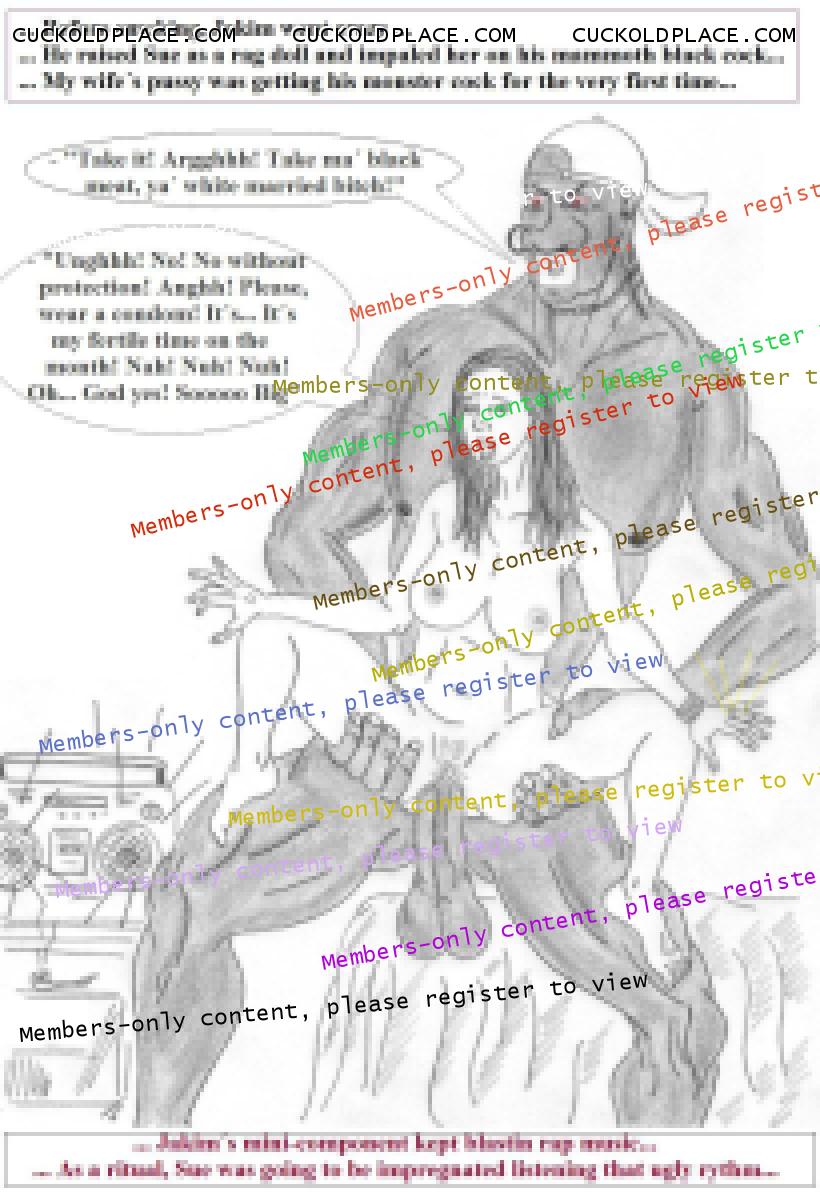 CUCKOLDPLACE.COM CUCKOLDPLACE.COM CUCKOLDPLACE.COM
... He raised Sue as a rag doll and impaled her on his mammoth black cock...
... My wife's pussy was getting his monster cock for the very first time...
- "Take it! Argghhh! Take ma' black
meat, ya' white married bitch!"
r to view
Members-only content, please regist
- "Unghhh! No! No without
protection! Anghh! Please,
wear a condom! It's... It's
my fertile time on the
month! Nuh! Nuh! Nuh!
Oh... God yes! Sooooo
Members-only content, please register
Members-only content, please register t
Members-only content, please register to view
Members-only content, please register
Members-only content, please regi
Members-only content, please register to view
Members-only content, please register to v
Members-only content, please register to view
Members-only content, please registe
Members-only content, please register to view
... Jakim's mini-component kept blastin rap music...
... As a ritual, Sue was going to be impregnated listening that ugly rythm...